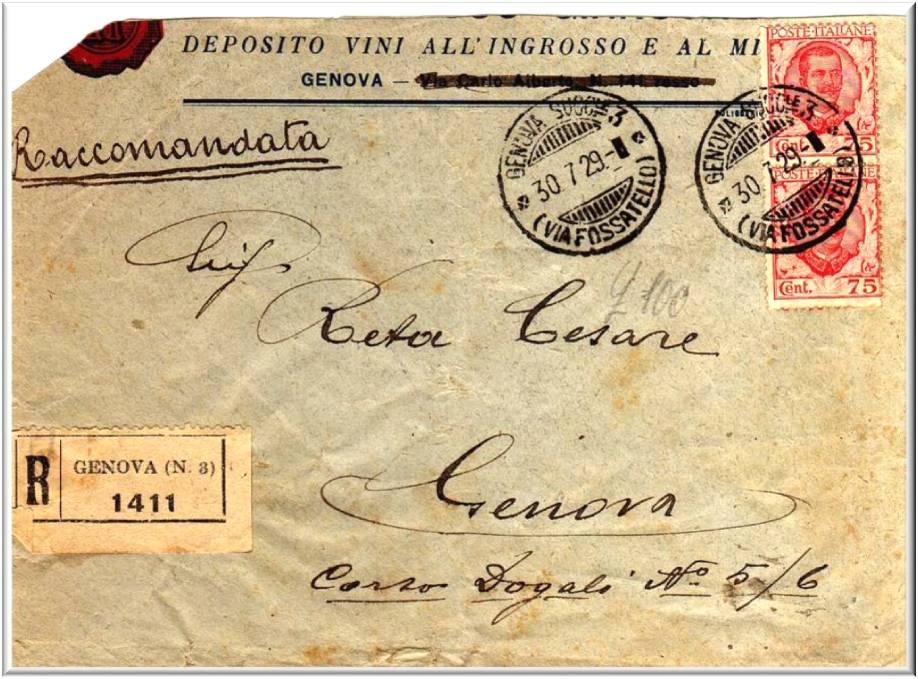 DEPOSITO VINI ALL'INGROSSO E AL MI
GENOVA — Via Carlo Alberto N. 141 rosso
Raccomandata
POSTE·ITALIANE
Cent. 75
POSTE·ITALIANE
Cent. 75
GENOVA SUCCLE 3
30.7.29.-
(VIA FOSSATELLO)
GENOVA SUCCLE 3
30.7.29.-
(VIA FOSSATELLO)
Reta Cesare
£ 100
R GENOVA (N. 3)
1411
Genova
Corso Dogali No 5/6